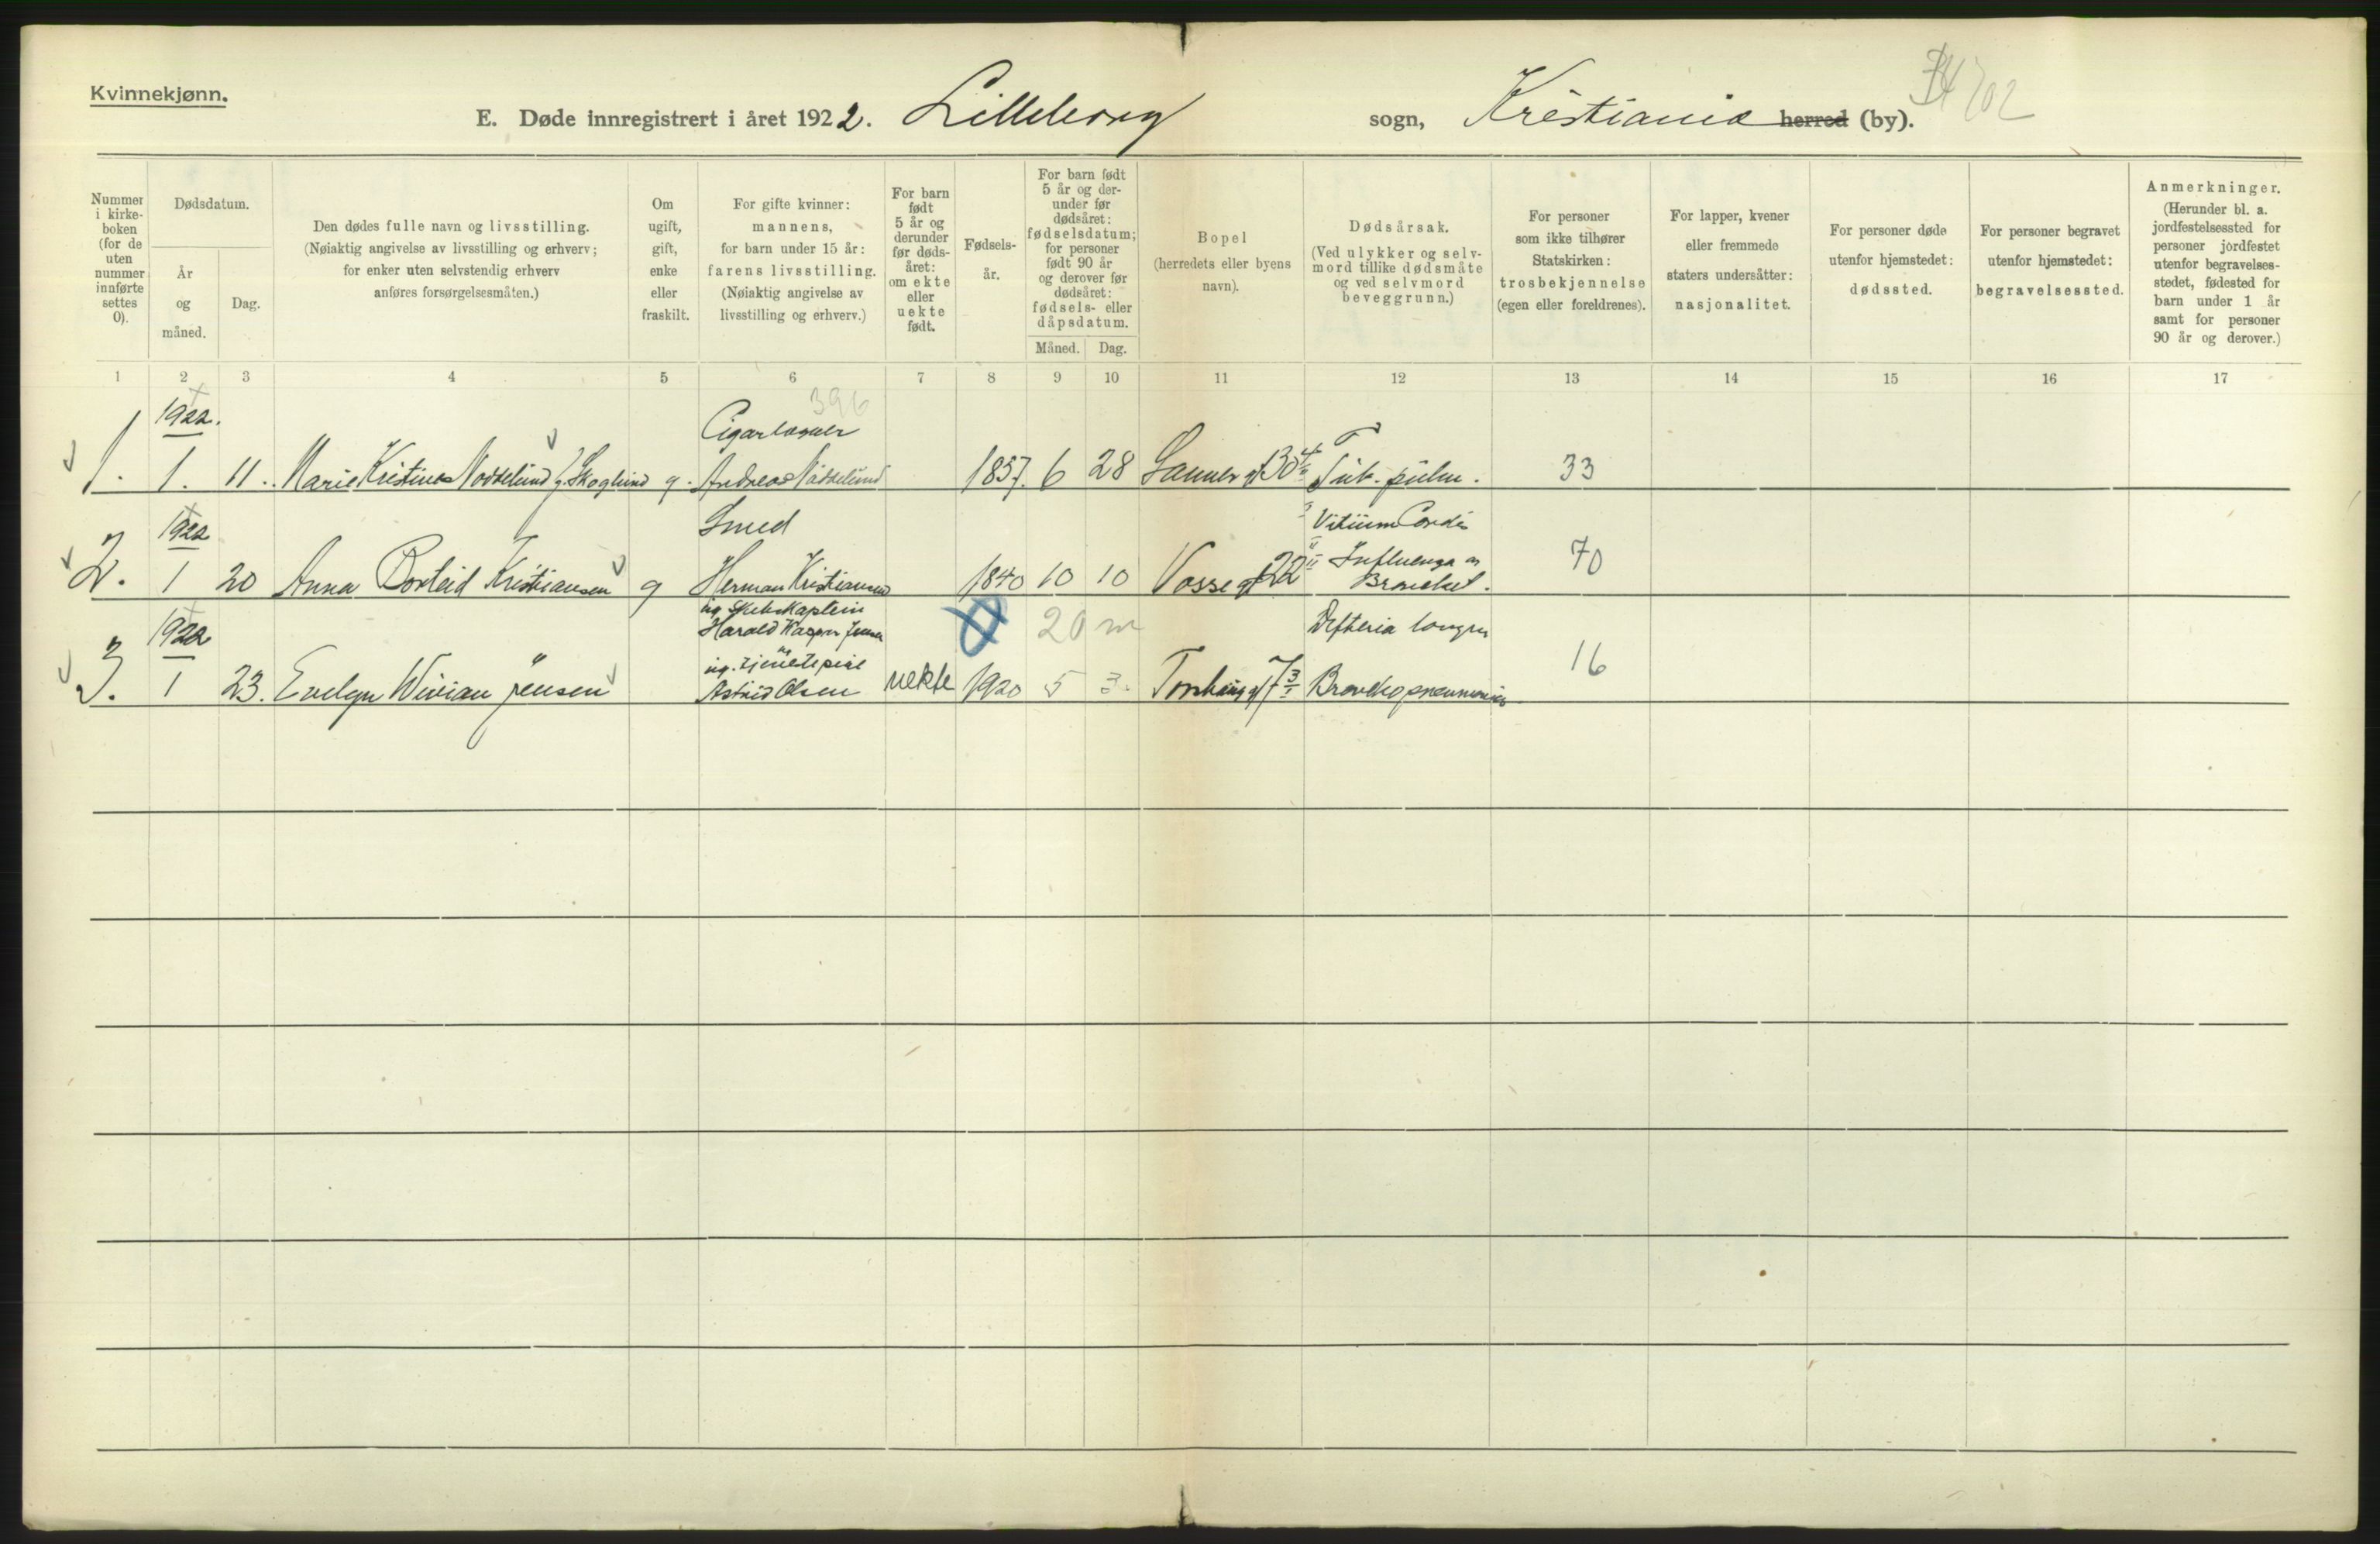 Kvinnekjønn.
E. Døde innregistrert i året 1922. Lilleborg sogn, Kristiania herred (by). 702
Nummer i kirkeboken (for de uten nummer innførte settes 0).
Dødsdatum.
År og måned.
Dag.
Den dødes fulle navn og livsstilling.
(Nøiaktig angivelse av livsstilling og erhverv;
for enker uten selvstendig erhverv
anføres forsørgelsesmåten.)
Om
ugift,
gift,
enke
eller
fraskilt.
For gifte kvinner:
mannens,
for barn under 15 år:
farens livsstilling.
(Nøiaktig angivelse av
livsstilling og erhverv.)
For barn
født
5 år og
derunder
før døds-
året:
om ekte
eller
uekte
født.
Fødsels-
år.
For barn født
5 år og der-
under før
dødsåret:
fødselsdatum;
for personer
født 90 år
og derover før
dødsåret:
fødsels- eller
dåpsdatum.
Måned. Dag.
Bopel
(herredets eller byens
navn).
Dødsårsak.
(Ved ulykker og selv-
mord tillike dødsmåte
og ved selvmord
beveggrunn.)
For personer
som ikke tilhører
Statskirken:
trosbekjennelse
(egen eller foreldrenes).
For lapper, kvener
eller fremmede
staters undersåtter:
nasjonalitet.
For personer døde
utenfor hjemstedet:
dødssted.
For personer begravet
utenfor hjemstedet:
begravelsessted.
Anmerkninger.
(Herunder bl. a.
jordfestelsessted for
personer jordfestet
utenfor begravelses-
stedet, fødested for
barn under 1 år
samt for personer
90 år og derover.)
1 2 3 4 5 6 7 8 9 10 11 12 13 14 15 16 17
1922. 396
Cigarlagner
1. 1. 11. Marie Kristine Noddelund f. Skoglund g. Andreas Noddelund 1857. 6 28 Sannergt 30 Tub. pulm. 33
1922 Smed Vitium Cordis
2. 1 20 Anna Borteid Kristiansen g Herman Kristiansen 1840 10 10 Vossegt 22 Influenza og Bronchit. 70
1922 ug Skibskaptein
Harald Kasper Jensen 20 m Difteria laryn
ug. tjenestepige
3. 1 23. Evelyn Wivian Jensen Astrid Olsen uekte 1920 5 3. Torshauggt 7 Bronchopneumonia 16